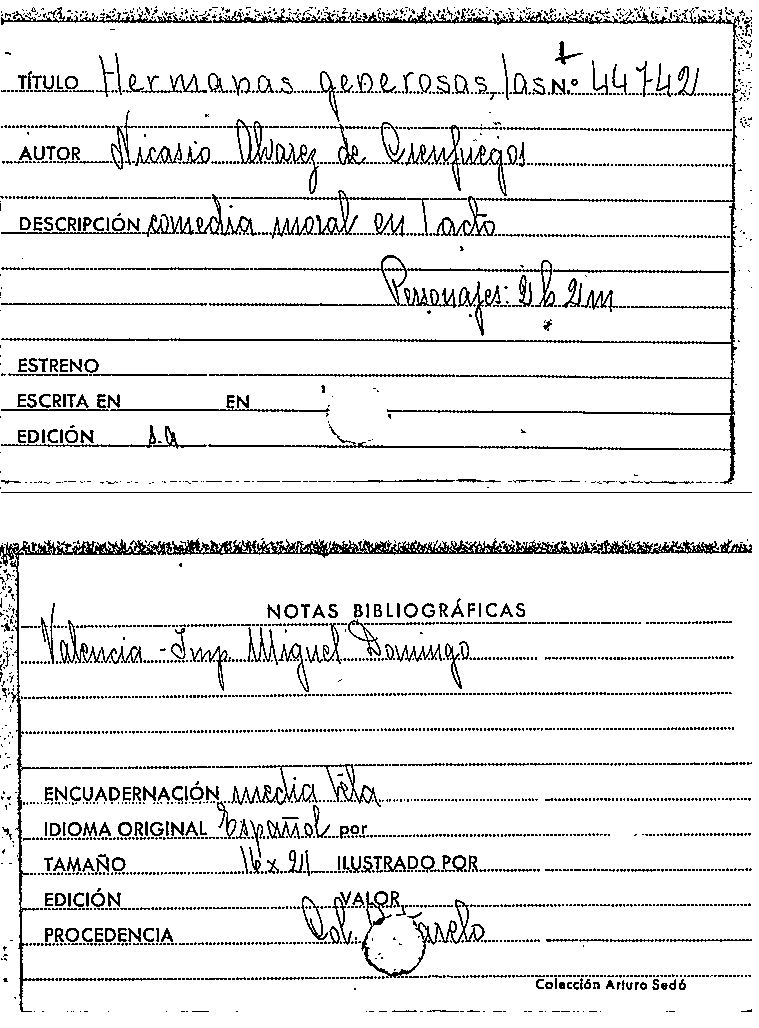 TÍTULO Hermanas generosas, las N.º 44742
AUTOR Nicasio Alvarez de Cienfuegos
DESCRIPCIÓN comedia moral en 1 acto
Personajes: 2 h 2 m
ESTRENO
ESCRITA EN EN
EDICIÓN s.a
NOTAS BIBLIOGRÁFICAS
Valencia - Imp. Miguel Domingo
ENCUADERNACIÓN media tela
IDIOMA ORIGINAL Español por
TAMAÑO 16 x 21 ILUSTRADO POR
EDICIÓN VALOR
PROCEDENCIA Col.
Colección Arturo Sedó